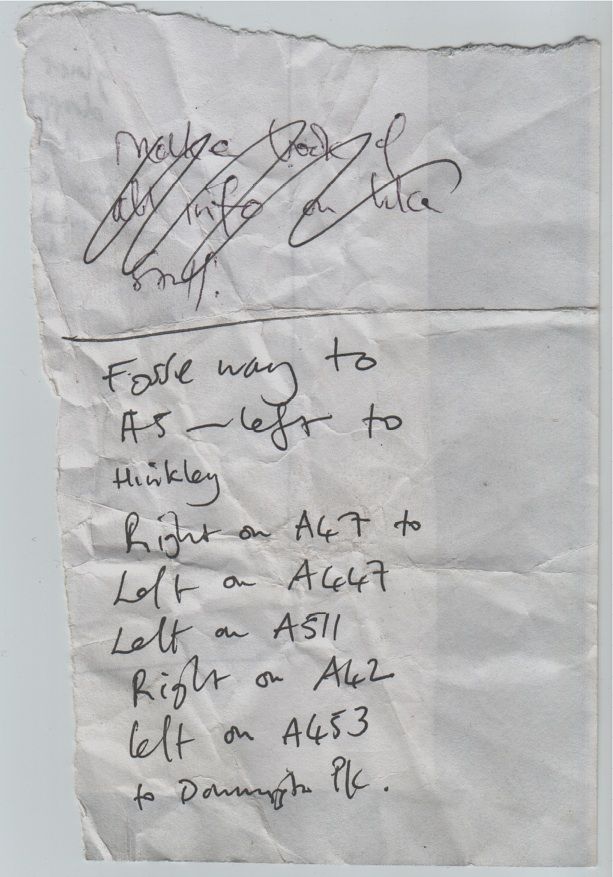 Make a book of
all info on
stuff.
Fosse way to
A5 - left to
Hinkley
Right on A47 to
Left on A447
Left on A511
Right on A42
left on A453
to Donnington Pk.